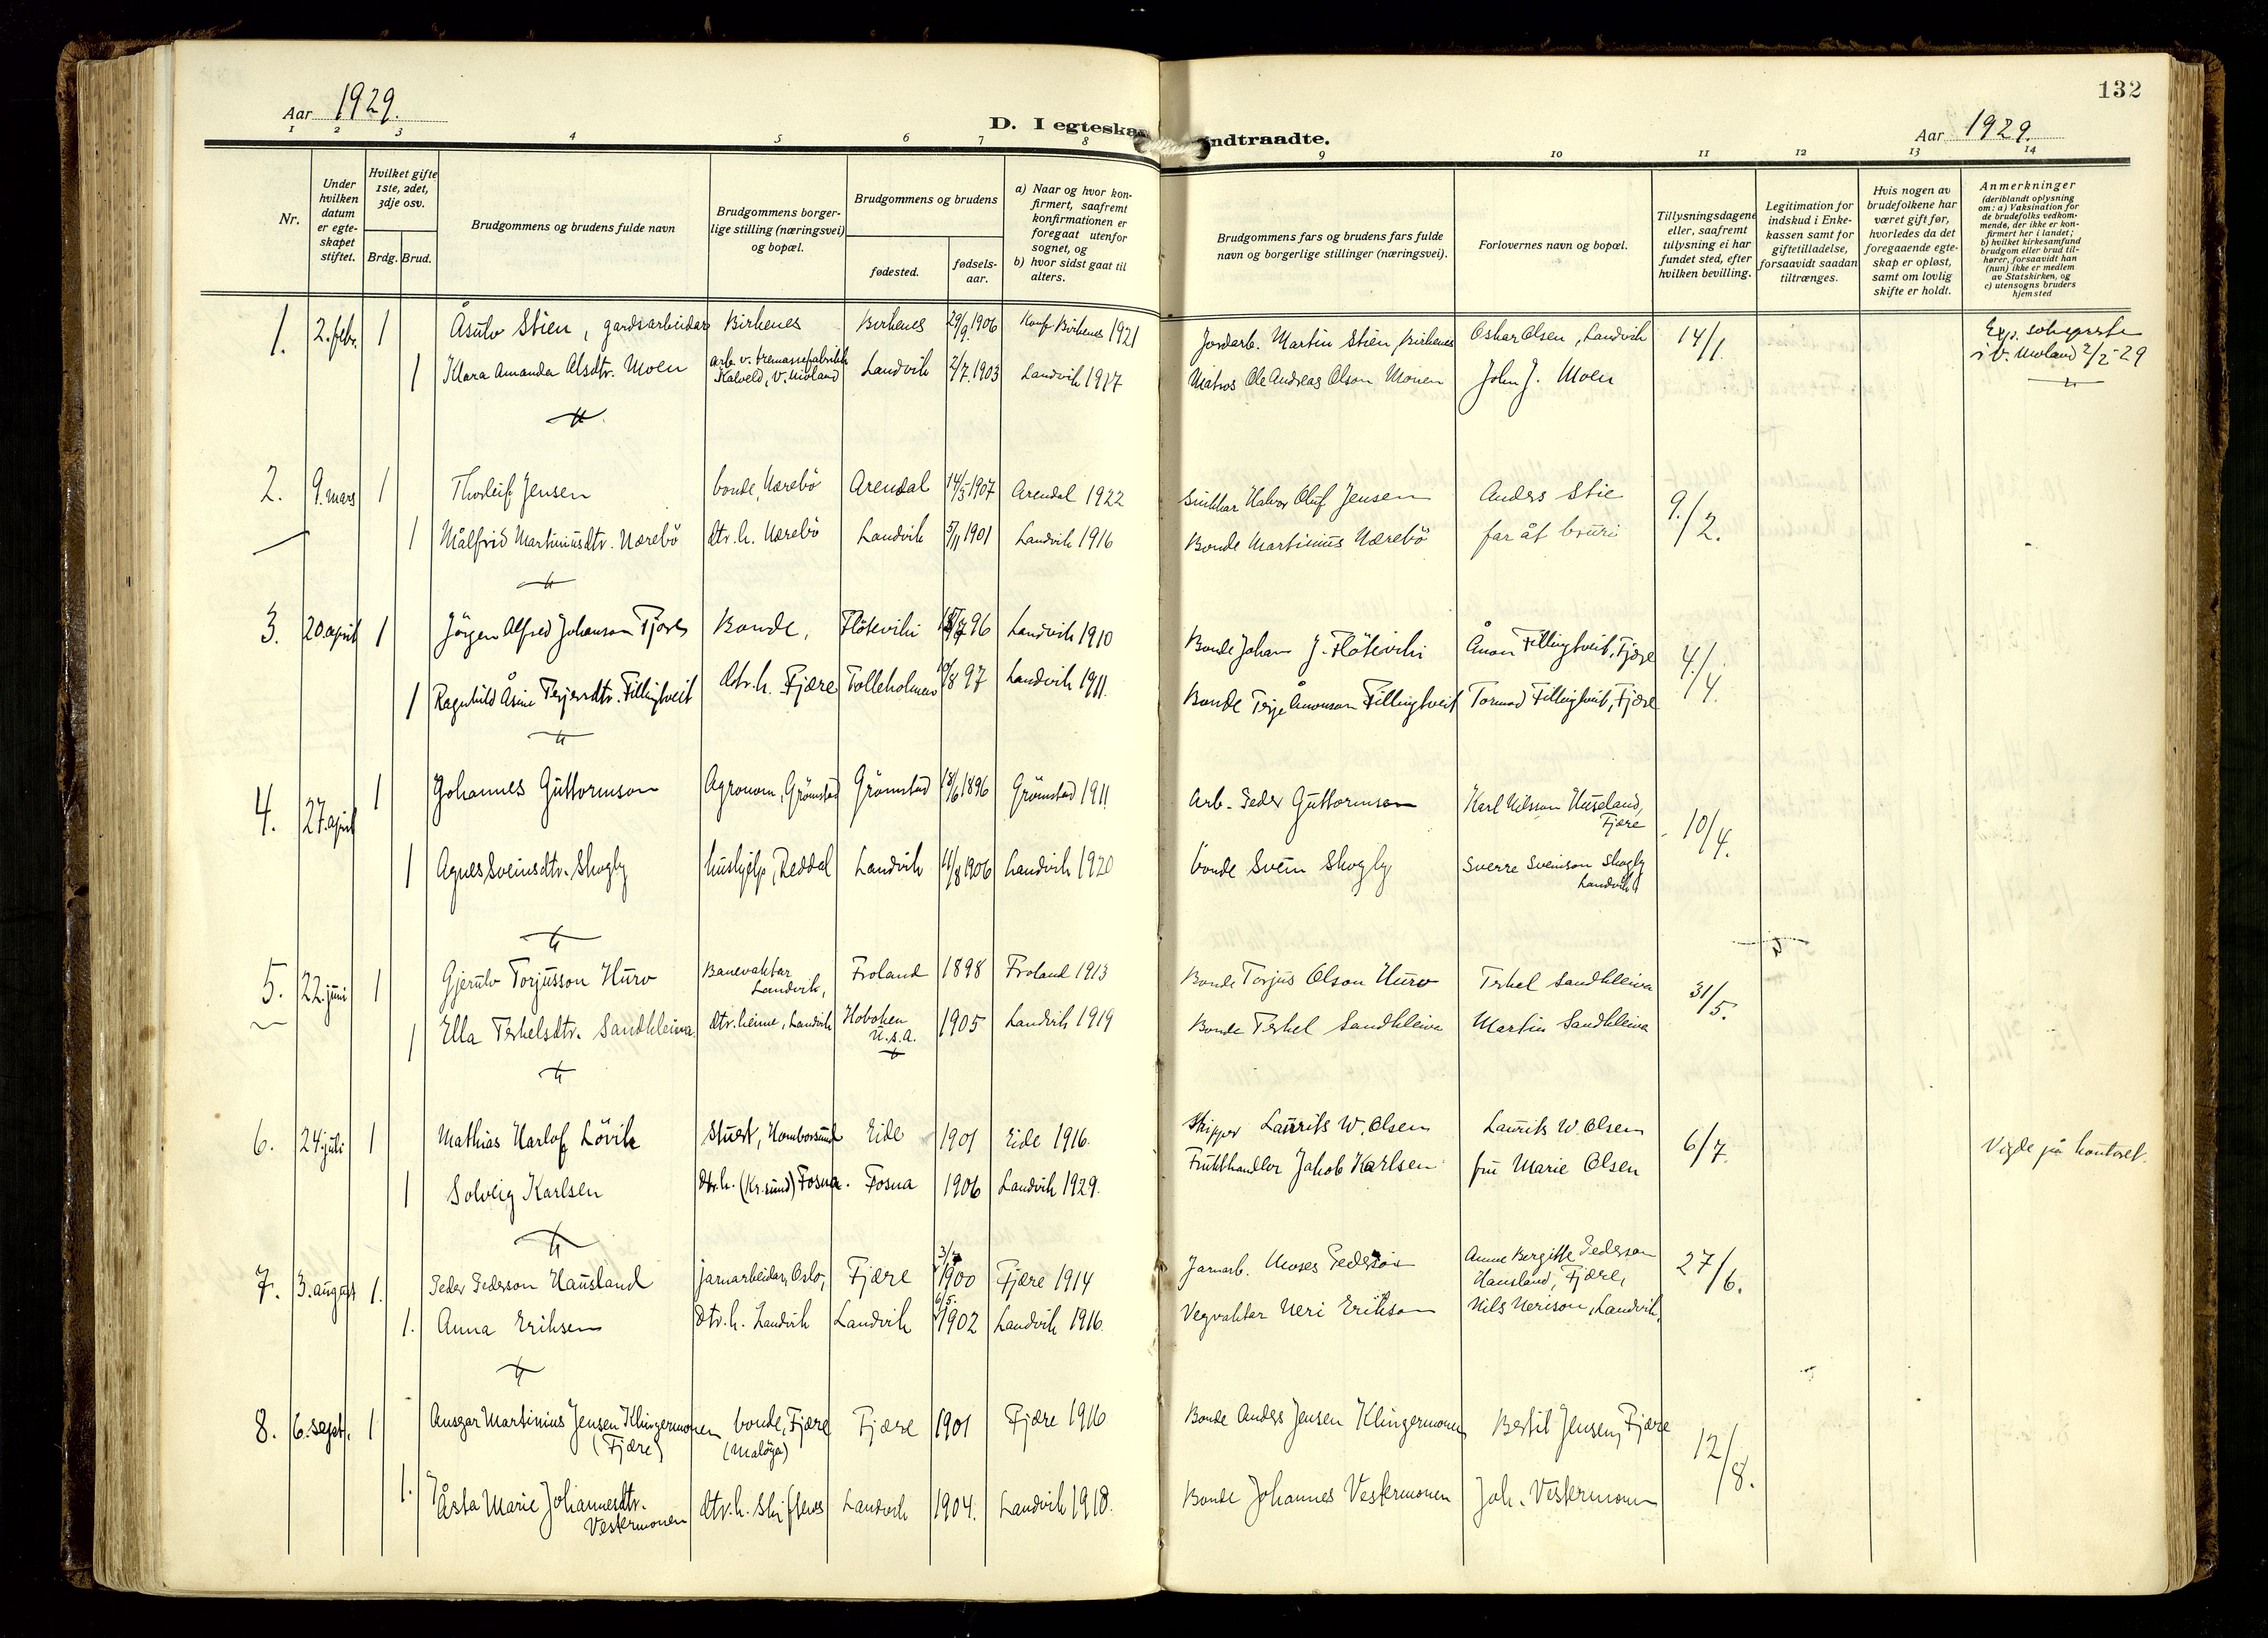 132
Aar 1929.
D. I egteska
ndtraadte.
Aar 1929.
1 2 3 4 5 6 7 8 9 10 11 12 13 14
Nr.
Under hvilken datum er egte-skapet stiftet.
Hvilket gifte 1ste, 2det, 3dje osv.
Brdg. Brud.
Brudgommens og brudens fulde navn
Brudgommens borger-lige stilling (næringsvei) og bopæl.
Brudgommens og brudens
fødested.
fødsels-aar.
a) Naar og hvor kon-firmert, saafremt konfirmationen er foregaat utenfor sognet, og
b) hvor sidst gaat til alters.
Brudgommens fars og brudens fars fulde navn og borgerlige stillinger (næringsvei).
Forlovernes navn og bopæl.
Tillysningsdagene eller, saafremt tillysning ei har fundet sted, efter hvilken bevilling.
Legitimation for indskud i Enke-kassen samt for giftetilladelse, forsaavidt saadan tiltrænges.
Hvis nogen av brudefolkene har været gift før, hvorledes da det foregaaende egte-skap er opløst, samt om lovlig skifte er holdt.
Anmerkninger (deriblandt oplysning om: a) Vaksination for de brudefolks vedkom-mende, der ikke er kon-firmert her i landet; b) hvilket kirkesamfund brudgom eller brud til-hører, forsaavidt han (hun) ikke er medlem av Statskirken, og c) utensogns bruders hjemsted
1. 2. febr. 1 Åsulv Stien, gardsarbeidar Birkenes Birkenes 29/9 1906 Konf. Birkenes 1921 Jordarb. Martin Stien, Birkenes Oskar Olsen, Landvik 14/1
1 Klara Amanda Olsdtr. Moen arb. v. tremassefabrikk Kalveld, V. Moland Landvik 2/7 1903 Landvik 1917 Matros Ole Andreas Olson Monen John J. Moen
i V. Moland 2/2-29
2. 9. mars 1 Thorleif Jensen bonde, Nærebö Arendal 14/5 1907 Arendal 1922 Halvor Oluf Jensen Anders Stie 9./2.
1 Målfrid Martiniusdtr. Nærebö dtr. h. Nærebö Landvik 5/11 1901 Landvik 1916 Bonde Martinius Nærebö far åt bruri
3. 20. april 1 Jörgen Alfred Johanson Fjære Bonde, Flöteviki 96 Landvik 1910 Bonde Johan J. Flöteviki Ånon Fillingtveit, Fjære 4./4.
1 Ragnhild Åsine Terjesdtr. Fillingtveit dtr. h. Fjære Tolleholmen 10/8 97 Landvik 1911. Bonde Terje Ånonson Fillingtveit Tormod Fillingtveit, Fjære
4. 27. april 1 Johannes Guttormson Agronom, Grömstad Grömstad 18/6 1896 Grömstad 1911 Arb. Peder Guttormsen Karl Nilsson Huseland, Fjære 10/4.
1 Agnes Sveinsdtr. Skogly hushjelp, Reddal Landvik 11/8 1906 Landvik 1920 bonde Svein Skogly Sverre Sveinson Skogly Landvik
5. 22. juni 1 Gjerulv Torjusson Huro Banevaktar Landvik, Froland 1898 Froland 1913 Bonde Torjus Olson Huro Terkel Sandkleiva 31/5.
1 Ella Terkelsdtr. Sandkleiva dtr. heime, Landvik Hoboken U.S.A. 1905 Landvik 1919 Bonde Terkel Sandkleiva Martin Sandkleiva
6. 24. juli 1 Mathias Harlof Lövik Stuert, Homborsund Eide 1901 Eide 1916. Skipper Laurits W. Olsen Laurits W. Olsen 6/7. Vigde på kontoret.
1 Solveig Karlsen dtr. h. (Kr.sund) Fosna. Fosna 1906 Landvik 1929. Frukthandler Jakob Karlsen fru Marie Olsen
7. 3. august 1. Peder Pederson Hausland jarnarbeidar, Oslo, Fjære 1900 Fjære 1914 Jarnarb. Moses Pederson Anne Bergitte Pederson Hausland, Fjære, 27/6.
1. Anna Eriksen dtr. h. Landvik Landvik 6/5. 1902 Landvik 1916. Vegvaktar Neri Erikson Nils Nerison, Landvik.
8. 6. sept. 1 Ansgar Martinius Jensen Klingermonen (Fjære) bonde, Fjære (Maløya) Fjære 1901 Fjære 1916 Bonde Anders Jensen Klingermonen Bertil Jensen, Fjære 12/8.
1. Åsta Marie Johannesdtr. Vestermonen dtr. h. Skiftenes Landvik 1904. Landvik 1918. Bonde Johannes Vestermonen Joh. Vestermonen